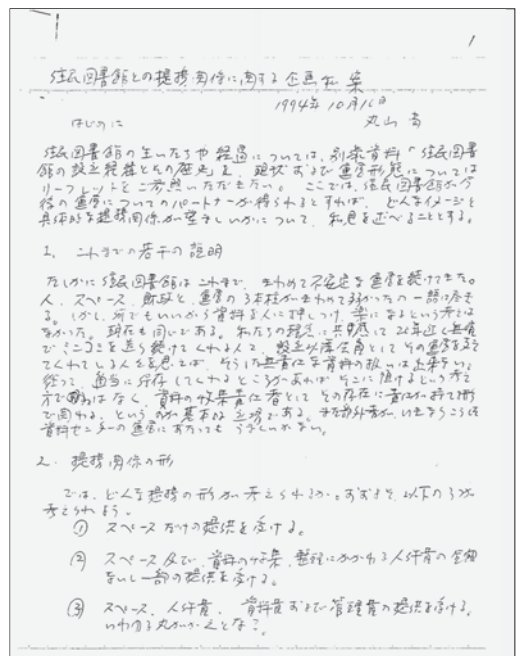 1
住民図書館との提携関係に関する企画私案
1994年10月16日
丸山 尚
はじめに
住民図書館の生いたちや経過については、別添資料「住民図書
館の設立経緯とその歴史」を、現状および運営形態については
リーフレットをご参照いただきたい。ここでは、住民図書館が今
後の運営についてのパートナーが得られるとすれば、どんなイメージと
具体的な提携関係が望ましいかについて、私見を述べることとする。
1. これまでの若干の説明
たしかに住民図書館はこれまで、きわめて不安定な運営を続けてきた。
人、スペース、財政と、運営の3本柱がきわめて弱かったの一語に尽き
る。しかし、何でもいいから資料を人に押しつけ、楽になるという考えは
なかった。現在も同じである。私たちの理念に共感して20年近く無償
でミニコミを送り続けてくれる人々、設立以来会員としてその運営を支え
てくれている人々を思えば、そうした無責任な資料の扱いは出来ない。
従って、適当に保存してくれるところがあればそこに預けるという考え
方ではなく、資料の収集責任者として その存在に責任が持てる形
で関わる、というのが基本的な立場である。
資料センターの運営にあたっても
2. 提携関係の形
では、どんな提携の形が考えられるか。おおよそ、以下の3つが
考えられよう。
① スペースだけの提供を受ける。
② スペース及び、資料の収集、整理にかかわる人件費の全額
ないし一部の提供を受ける。
③ スペース、人件費、資料費および管理費の提供を受ける。
いわゆる丸がかえとなる。